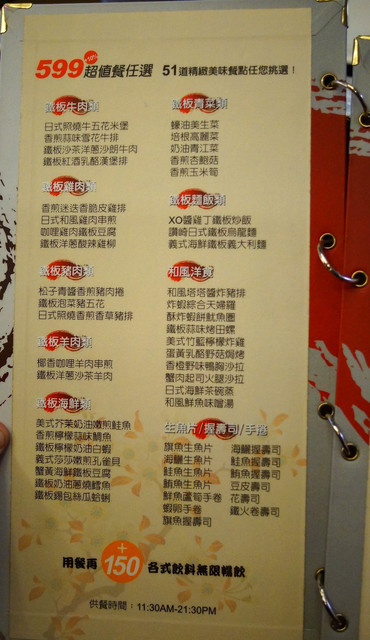 599 超值餐任選 51道精緻美味餐點任您挑選！
鐵板牛肉類
日式照燒牛五花米堡
香煎蒜味雪花牛排
鐵板沙茶洋蔥沙朗牛肉
鐵板紅酒乳酪漢堡排
鐵板雞肉類
香煎迷迭香脆皮雞排
日式和風雞肉串煎
咖哩雞肉鐵板豆腐
鐵板洋蔥酸辣雞柳
鐵板豬肉類
松子青醬香煎豬肉捲
鐵板泡菜豬五花
日式照燒香煎香草豬排
鐵板羊肉類
椰香咖哩羊肉串煎
鐵板洋蔥沙茶羊肉
鐵板海鮮類
美式芥茉奶油嫩煎鮭魚
香煎檸檬蒜味鯛魚
鐵板檸檬奶油白蝦
義式莎莎嫩煎孔雀貝
蟹黃海鮮鐵板豆腐
鐵板奶油蔥燒鱈魚
鐵板錫包絲瓜蛤蜊
鐵板青菜類
蠔油美生菜
培根高麗菜
奶油青江菜
香煎杏鮑菇
香煎玉米筍
鐵板麵飯類
XO醬雞丁鐵板炒飯
讚崎日式鐵板烏龍麵
義式海鮮鐵板義大利麵
和風洋食
和風塔塔醬炸豬排
炸蝦綜合天婦羅
酥炸蝦餅魷魚圈
鐵板蒜味烤田螺
美式竹籃檸檬炸雞
蛋黃乳酪野菇焗烤
香橙野味鴨胸沙拉
蟹肉起司火腿沙拉
日式海鮮茶碗蒸
和風鮮魚味噌湯
生魚片/握壽司/手捲
旗魚生魚片
海鱺生魚片
鮭魚生魚片
鮪魚生魚片
鮮魚蘆筍手卷
蝦卵手卷
旗魚握壽司
海鱺握壽司
鮭魚握壽司
鮪魚握壽司
豆皮壽司
花壽司
鐵火卷壽司
用餐再 +150 各式飲料無限暢飲
供餐時間：11:30AM-21:30PM